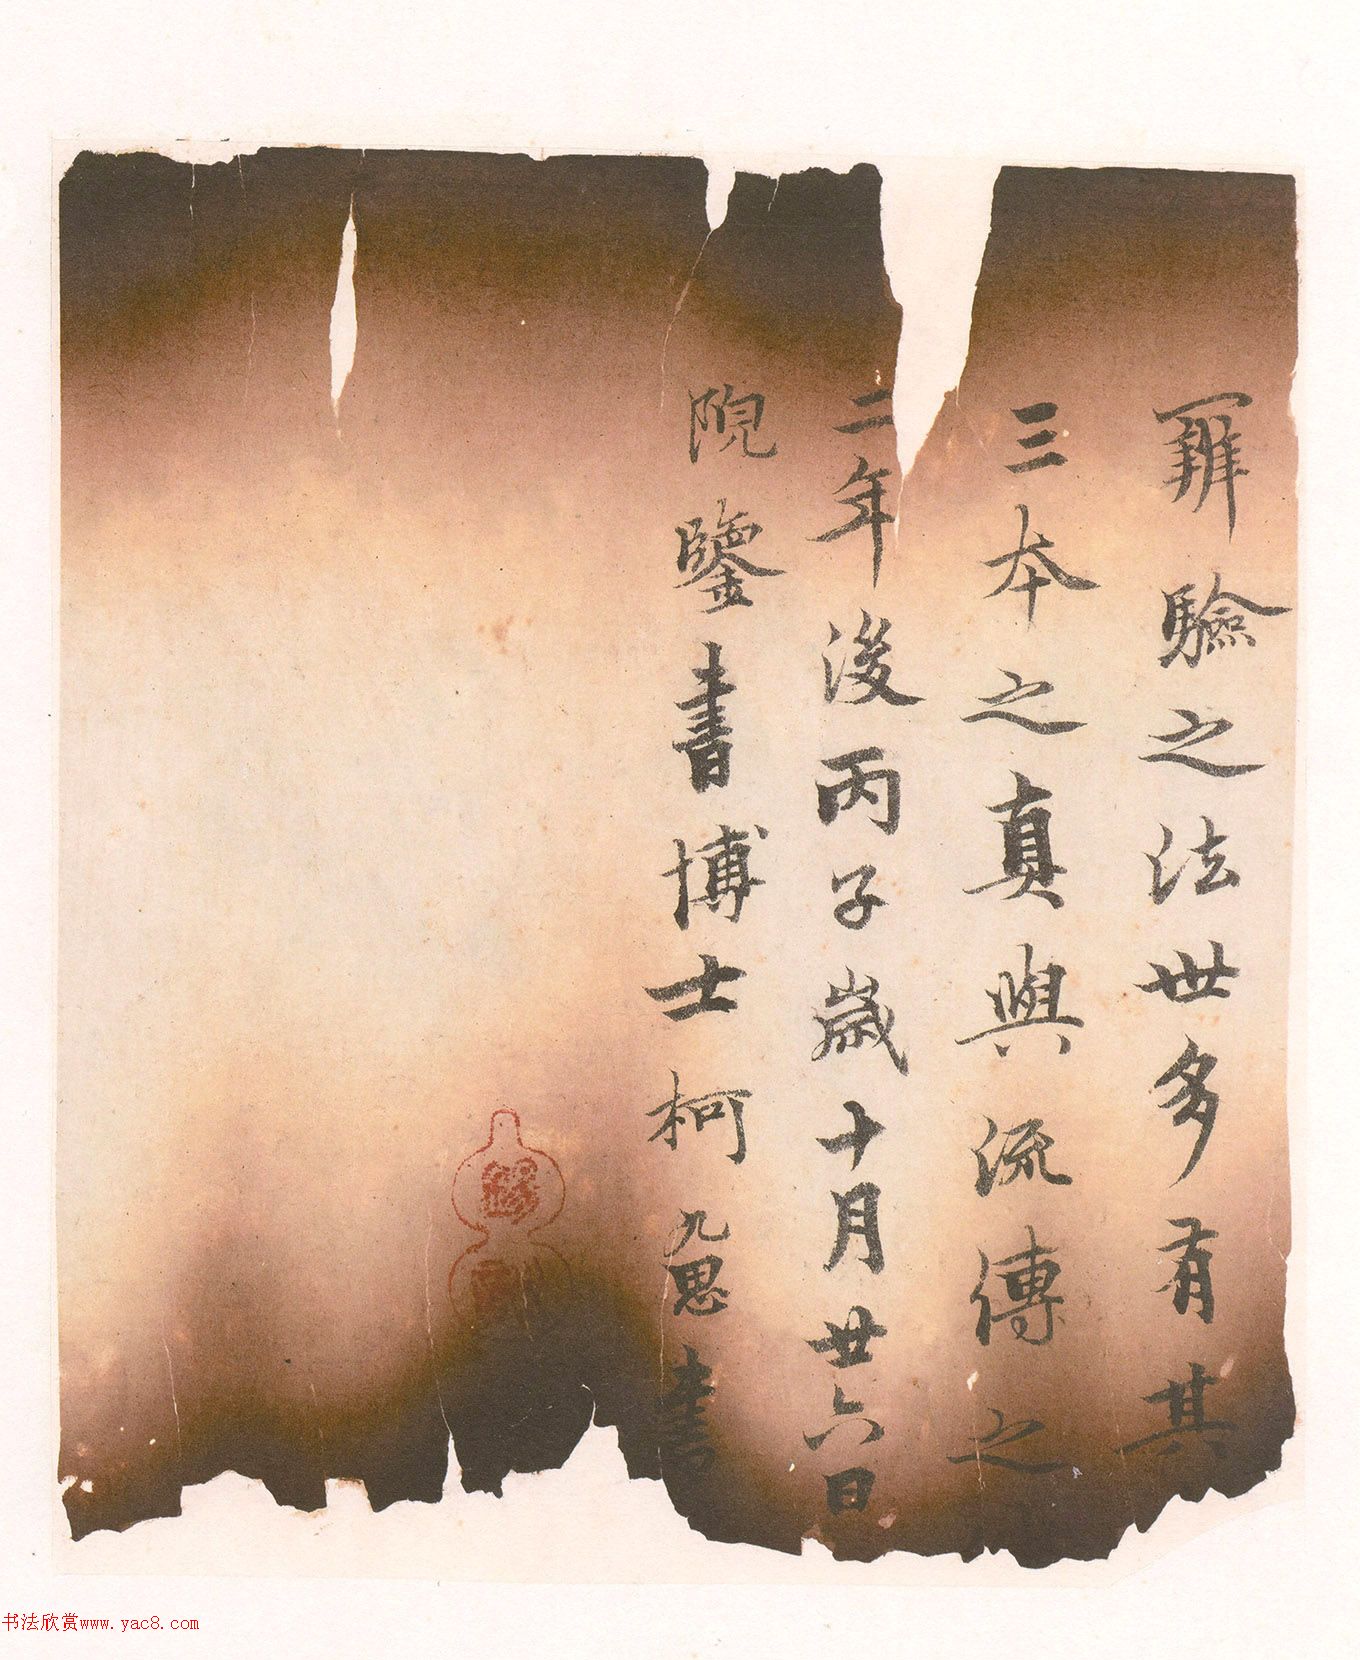 辨驗之法世多有其
三本之真與流傳之
二年後丙子歲十月廿六日
院鑒書博士柯九思書
书法欣赏www.yac8.com